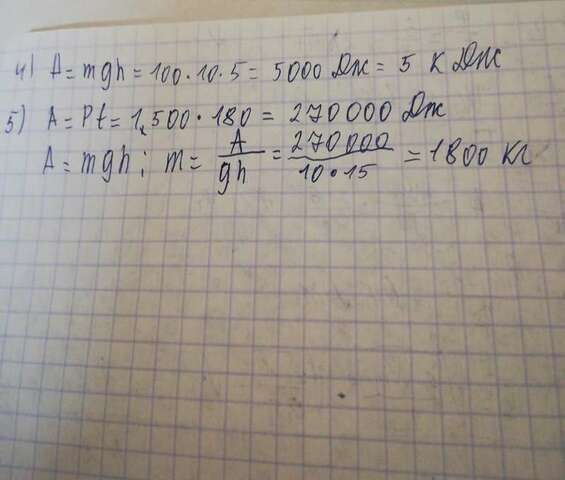 4) A = mgh = 100·10·5 = 5000 Дж = 5 кДж
5) A = Pt = 1,500·180 = 270000 Дж
A = mgh; m = A/gh = 270000/10·15 = 1800 кг